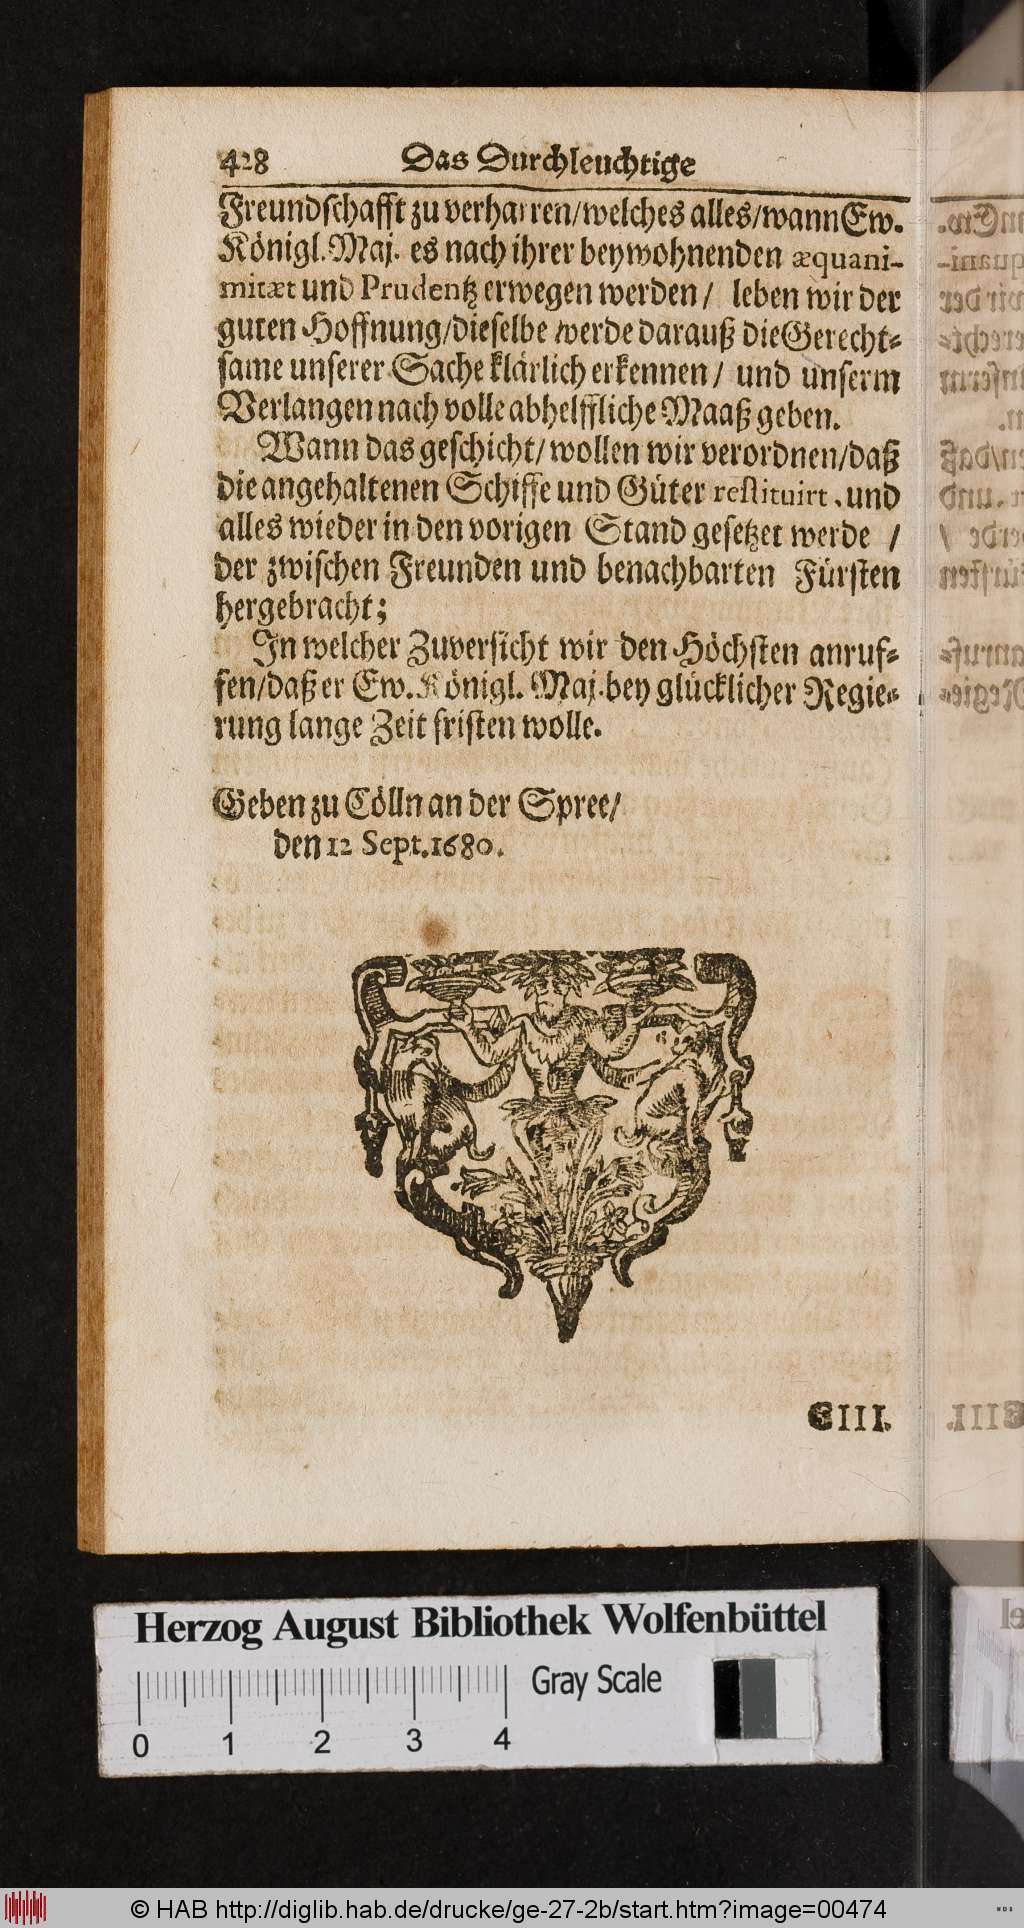 428 Das Durchleuchtige
Freundschafft zu verharren/welches alles/wann Ew.
Königl. Maj. es nach ihrer beywohnenden æquani-
mitæt und Prudentz erwegen werden/ leben wir der
guten Hoffnung/dieselbe werde darauß die Gerecht-
same unserer Sache klärlich erkennen/ und unserm
Verlangen nach volle abhelffliche Maaß geben.
Wann das geschicht/wollen wir verordnen/daß
die angehaltenen Schiffe und Güter restituirt, und
alles wieder in den vorigen Stand gesetzet werde /
der zwischen Freunden und benachbarten Fürsten
hergebracht;
In welcher Zuversicht wir den Höchsten anruf-
fen/daß er Ew. Königl. Maj. bey glücklicher Regie-
rung lange Zeit fristen wolle.
Geben zu Cölln an der Spree/
den 12 Sept. 1680.
CIII.
Herzog August Bibliothek Wolfenbüttel
Gray Scale
0 1 2 3 4
© HAB http://diglib.hab.de/drucke/ge-27-2b/start.htm?image=00474